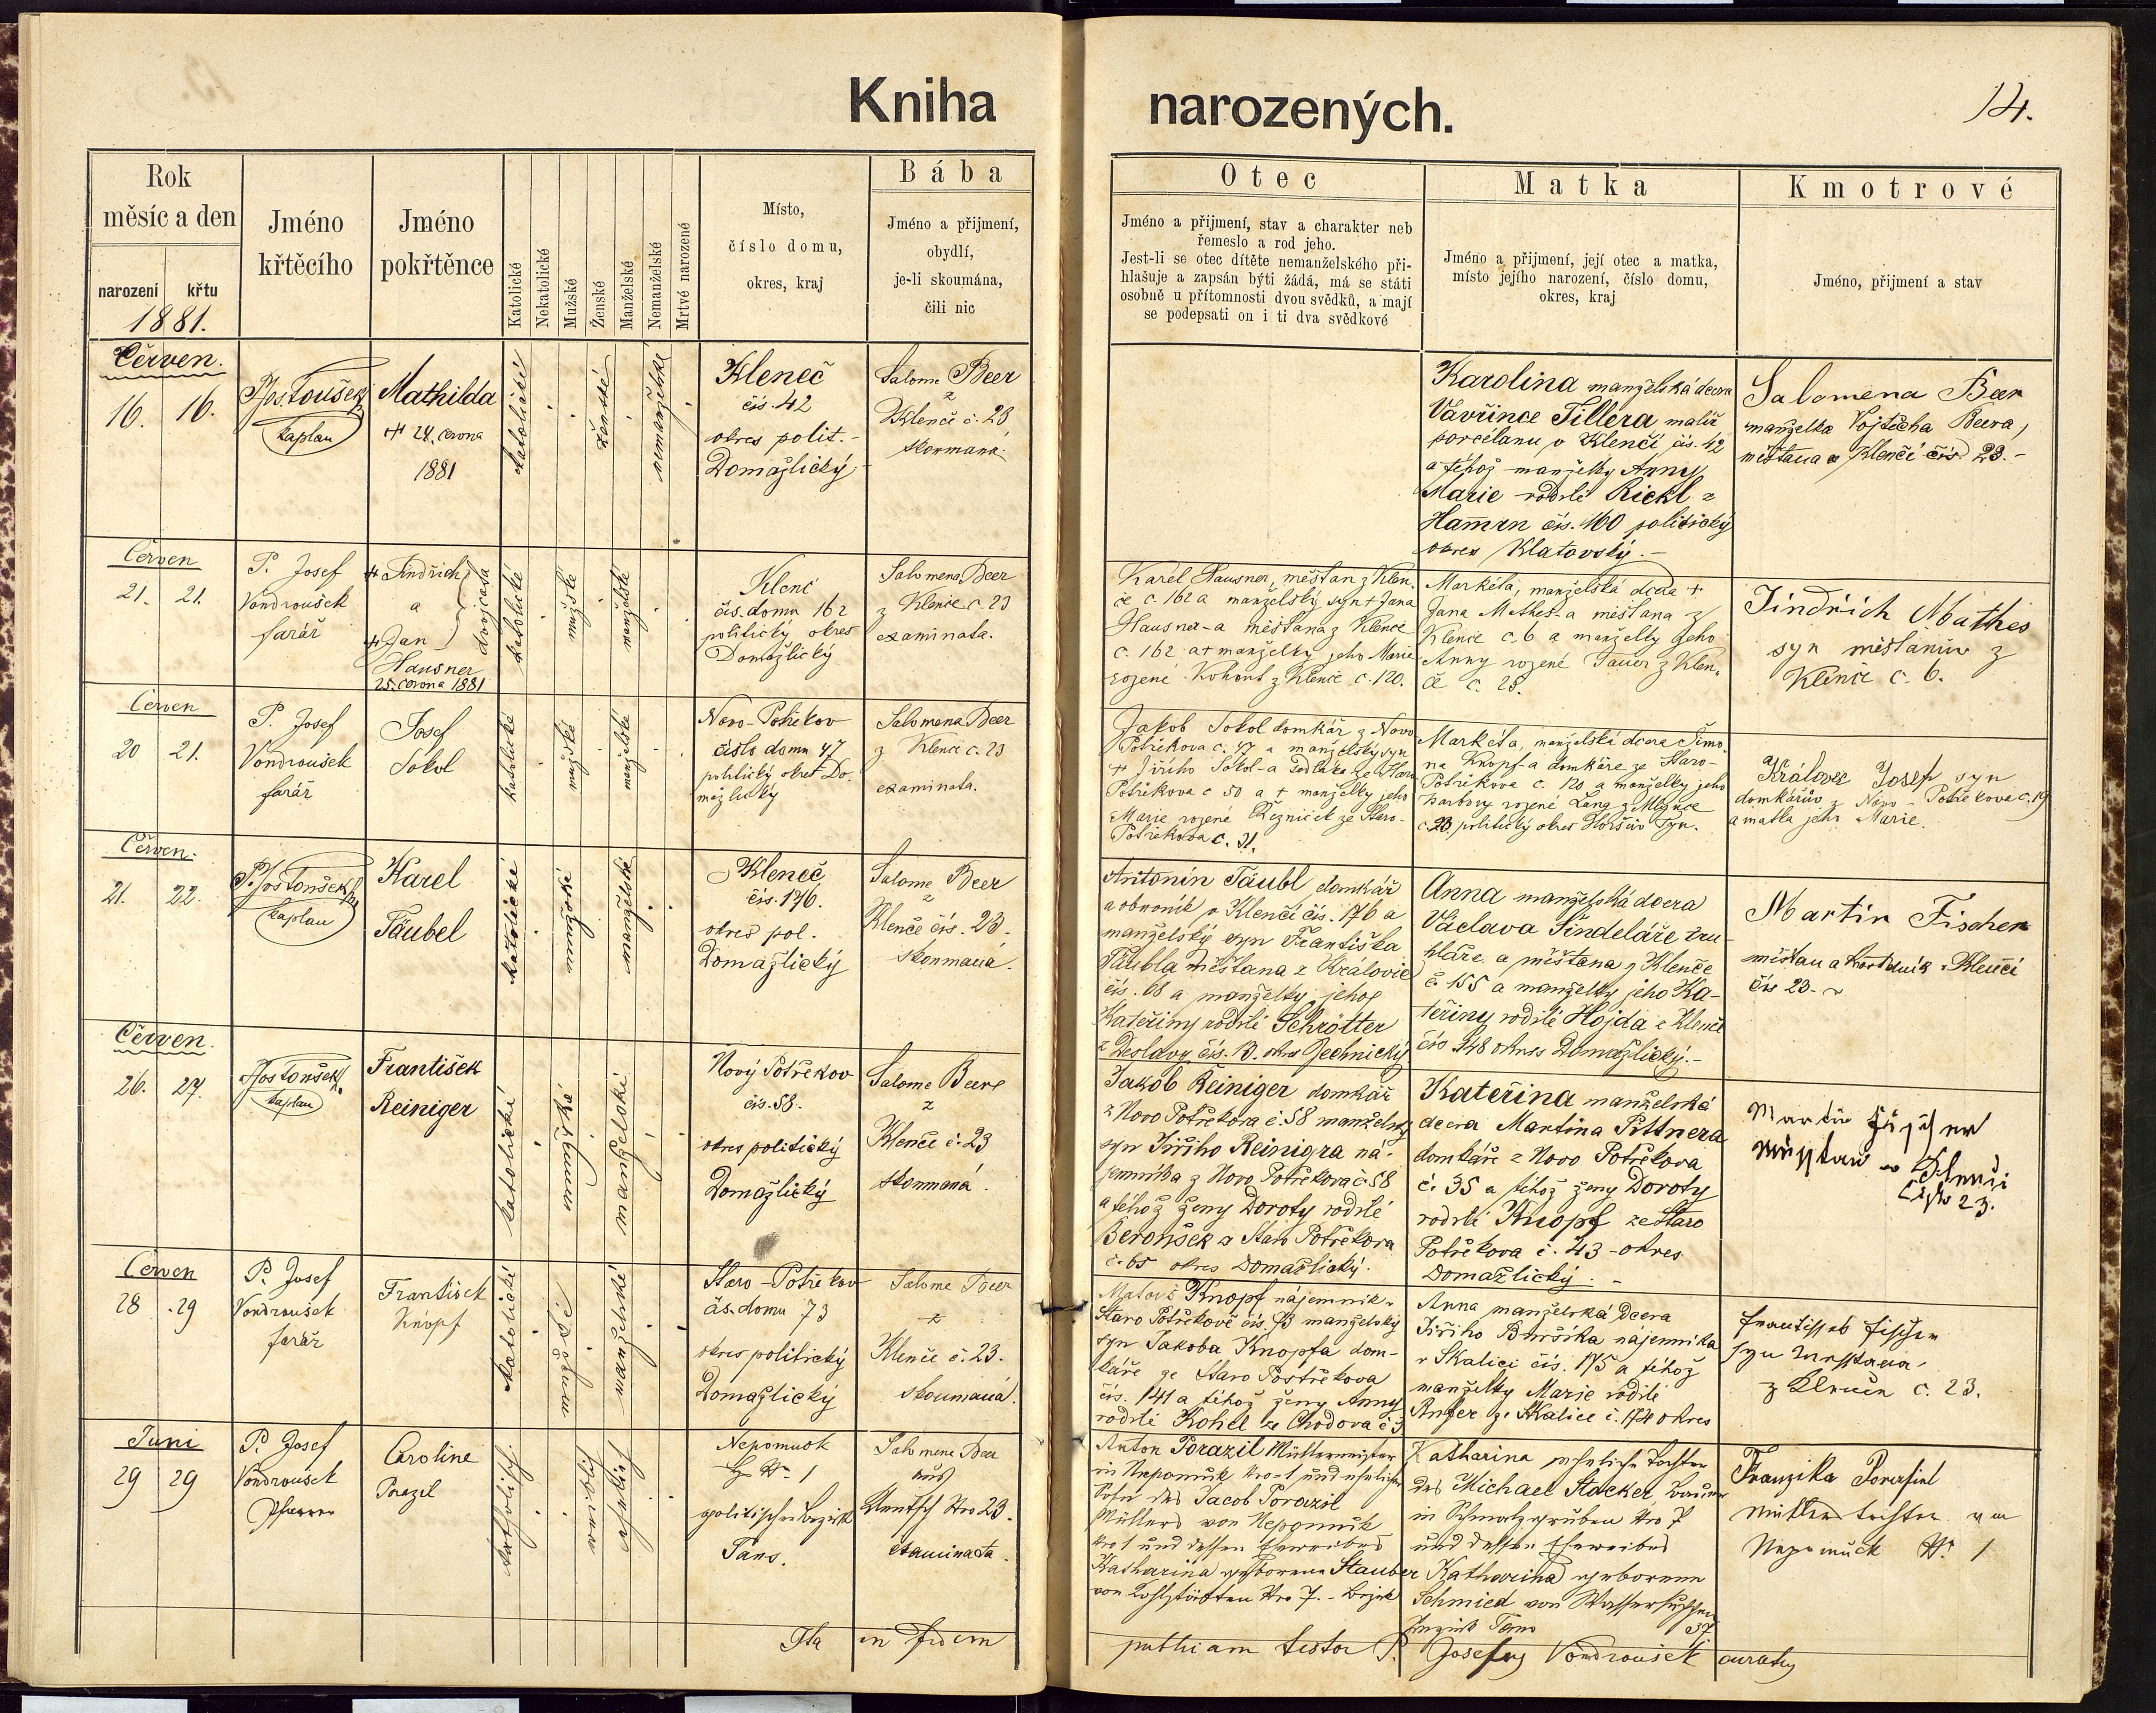 Kniha narozených.
14.
Rok
měsíc a den
narození
křtu
1881.
Jméno
křtěcího
Jméno
pokřtěnce
Katolické
Nekatolické
Mužské
Ženské
Manželské
Nemanželské
Mrtvé narozené
Místo,
číslo domu,
okres, kraj
Bába
Jméno a přijmení,
obydlí,
je-li skoumána,
čili nic
Otec
Jméno a přijmení, stav a charakter neb
řemeslo a rod jeho.
Jest-li se otec dítěte nemanželského při-
hlašuje a zapsán býti žádá, má se státi
osobně u přítomnosti dvou svědků, a mají
se podepsati on i ti dva svědkové
Matka
Jméno a přijmení, její otec a matka,
místo jejího narození, číslo domu,
okres, kraj
Kmotrové
Jméno, přijmení a stav
Červen.
16. 16.
P. Jos. Toušek
kaplan
Mathilda
+ 24. června
1881
katolické
ženské
nemanželské
Kleneč
čís. 42
okres polit.
Domažlický
Salome Beer
z
Klenče č. 23
skoumaná
Karolina manželská dcera
Vavřince Tillera malíř
porcelanu v Klenčí čís. 42
a téhož manželky Anny
Marie rodilé Rickl z
Hamrn čís. 160 politický
okres Klatovský.-
Salomena Beer
manželka Vojtěcha Beera,
měšťana v Klenčí čís 23.-
Červen
21. 21.
P. Josef
Vondroušek
farář
+ Jindřich
a
+ Jan
dvojčata
Hausner
25. června 1881
katolické
mužské
manželské
Klenč
čís. domu 162
politický okres
Domažlický
Salomena Beer
z Klenče c. 23
examinata.
Karel Hausner, měšťan z Klen
če c. 162 a manželský syn + Jana
Hausner-a měšťana z Klenče
c. 162 a + manželky jeho Marie
rozené Kohout z Klenče c. 120.
Markéta, manželská dcera +
Jana Mathes-a měšťana z
Klenče c. 6 a manželky jeho
Anny rozené Tauer z Klen-
če c. 25.
Jindřich Mathes
syn měšťanův z
Klenče c. 6.
Červen
20 21.
P. Josef
Vondroušek
farář
Josef
Sokol
katolické
mužské
manželské
Novo-Potřekov
číslo domu 47
politický okres Do-
mažlický
Salomena Beer
z Klenčí c. 23
examinata.
Jakob Sokol domkář z Novo
Potřekova c. 47 a manželský syn
+ Jiřího Sokol-a sedláka ze Staro
Potřekova c 50 a + manželky jeho
Marie rozené Řezníček ze Staro-
Potřekova c. 31.
Markéta, manželská dcera Šimo-
na Knopf-a domkáře ze Staro-
Potřekova c. 120 a manželky jeho
Barbory rozené Lang z
c. 23 politický okres Horšův Týn.
Královec Josef syn
domkářův z Novo-Potřekova c. 19
a matka jeho Marie.
Červen.
21. 22.
P. Jos Toušek
kaplan
Karel
Täubel
katolické
mužské
manželské
Kleneč
čís. 176.
okres pol.
Domažlický
Salome Beer
z
Klenče čís. 23.
skoumaná.
Antonín Täubl domkář
a obuvník v Klenčí čís. 176 a
manželský syn Františka
Täubla měšťana z Královic
čís. 68 a manželky jeho
Kateřiny rodilé Schrötter
z Deslavy čís. 13. okres Jechnický
Anna manželská dcera
Václava Šindeláře tru-
hláře a měšťana z Klenče
č. 155 a manželky jeho Ka-
teřiny rodilé Hojda z Klenče
čís 148 okres Domažlický.-
Martin Fischer
měšťan a v Klenčí
čís 23.
Červen.
26. 27.
P. Jos Toušek
kaplan
František
Reiniger
katolické
mužské
manželské
Nový Potřekov
čís. 58.
okres politický
Domažlický
Salome Beere
z
Klenče č. 23
skoumaná.
Jakob Reiniger domkář
z Novo Potřekova č. 58 manželský
syn Jiřího Reinigra ná-
jemníka z Novo Potřekova č. 58
a téhož ženy Doroty rodilé
Beroušek z Staro Potřekova
č. 65 okres Domažlický.
Kateřina manželská
dcera Martina Pittnera
domkáře z Novo Potřekova
č. 35 a téhož ženy Doroty
rodilé Knopf ze Staro
Potřekova č. 43 - okres
Domažlický.-
Martin Fischer
v Klenči
číslo 23.
Červen
28 29
P. Josef
Vondroušek
farář
František
Knopf
katolické
mužské
manželské
Staro-Potřekov
čís. domu 73
okres politický
Domažlický
Salome Beer
z
Klenče č. 23.
skoumaná.
Matouš Knopf nájemník v
Staro Potřekově čís. 73 manželský
syn Jakoba Knopfa dom-
káře ze Staro Postřekova
čís. 141 a téhož ženy Anny
rodilé Kohel ze Chodova č 3
Anna manželská dcera
Jiřího Buršíka nájemníka
v Skalici čís. 175 a téhož
manželky Marie rodilé
Anger ze Skalice č. 174 okres
Frantissek Fischer
syn
z Klenče c. 23.
Juni
29 29
P. Josef
Vondroušek
Pfarrer
Caroline
Porazil
katholisch
ehelich
Nepomuck
Hs Nr. 1
politischer Bezirk
Taus.
Salomena Beer
aus
Klentsch Nro 23.
examinata.
Anton Porazil Müllermeister
in Nepomuk Nro 1 und ehelicher
Sohn des Jacob Porazil
Müllers von Nepomuk
Nro 1 und dessen Eheweibes
Katharina geborenen Stauber
von Nro 7. - Bezirk
Katharina eheliche Tochter
des Michael Stacker, Bauer
in Schmalzgruben Nro 7
und dessen Eheweibes
Katharina geborenen
Schmied von Wassersuppen
Bezirk Taus 37
Franziska Porasil
Müllers Tochter von
Nepomuck Nr. 1
Ita in fidem
publicam testor P. Josefus Vondroušek curatus